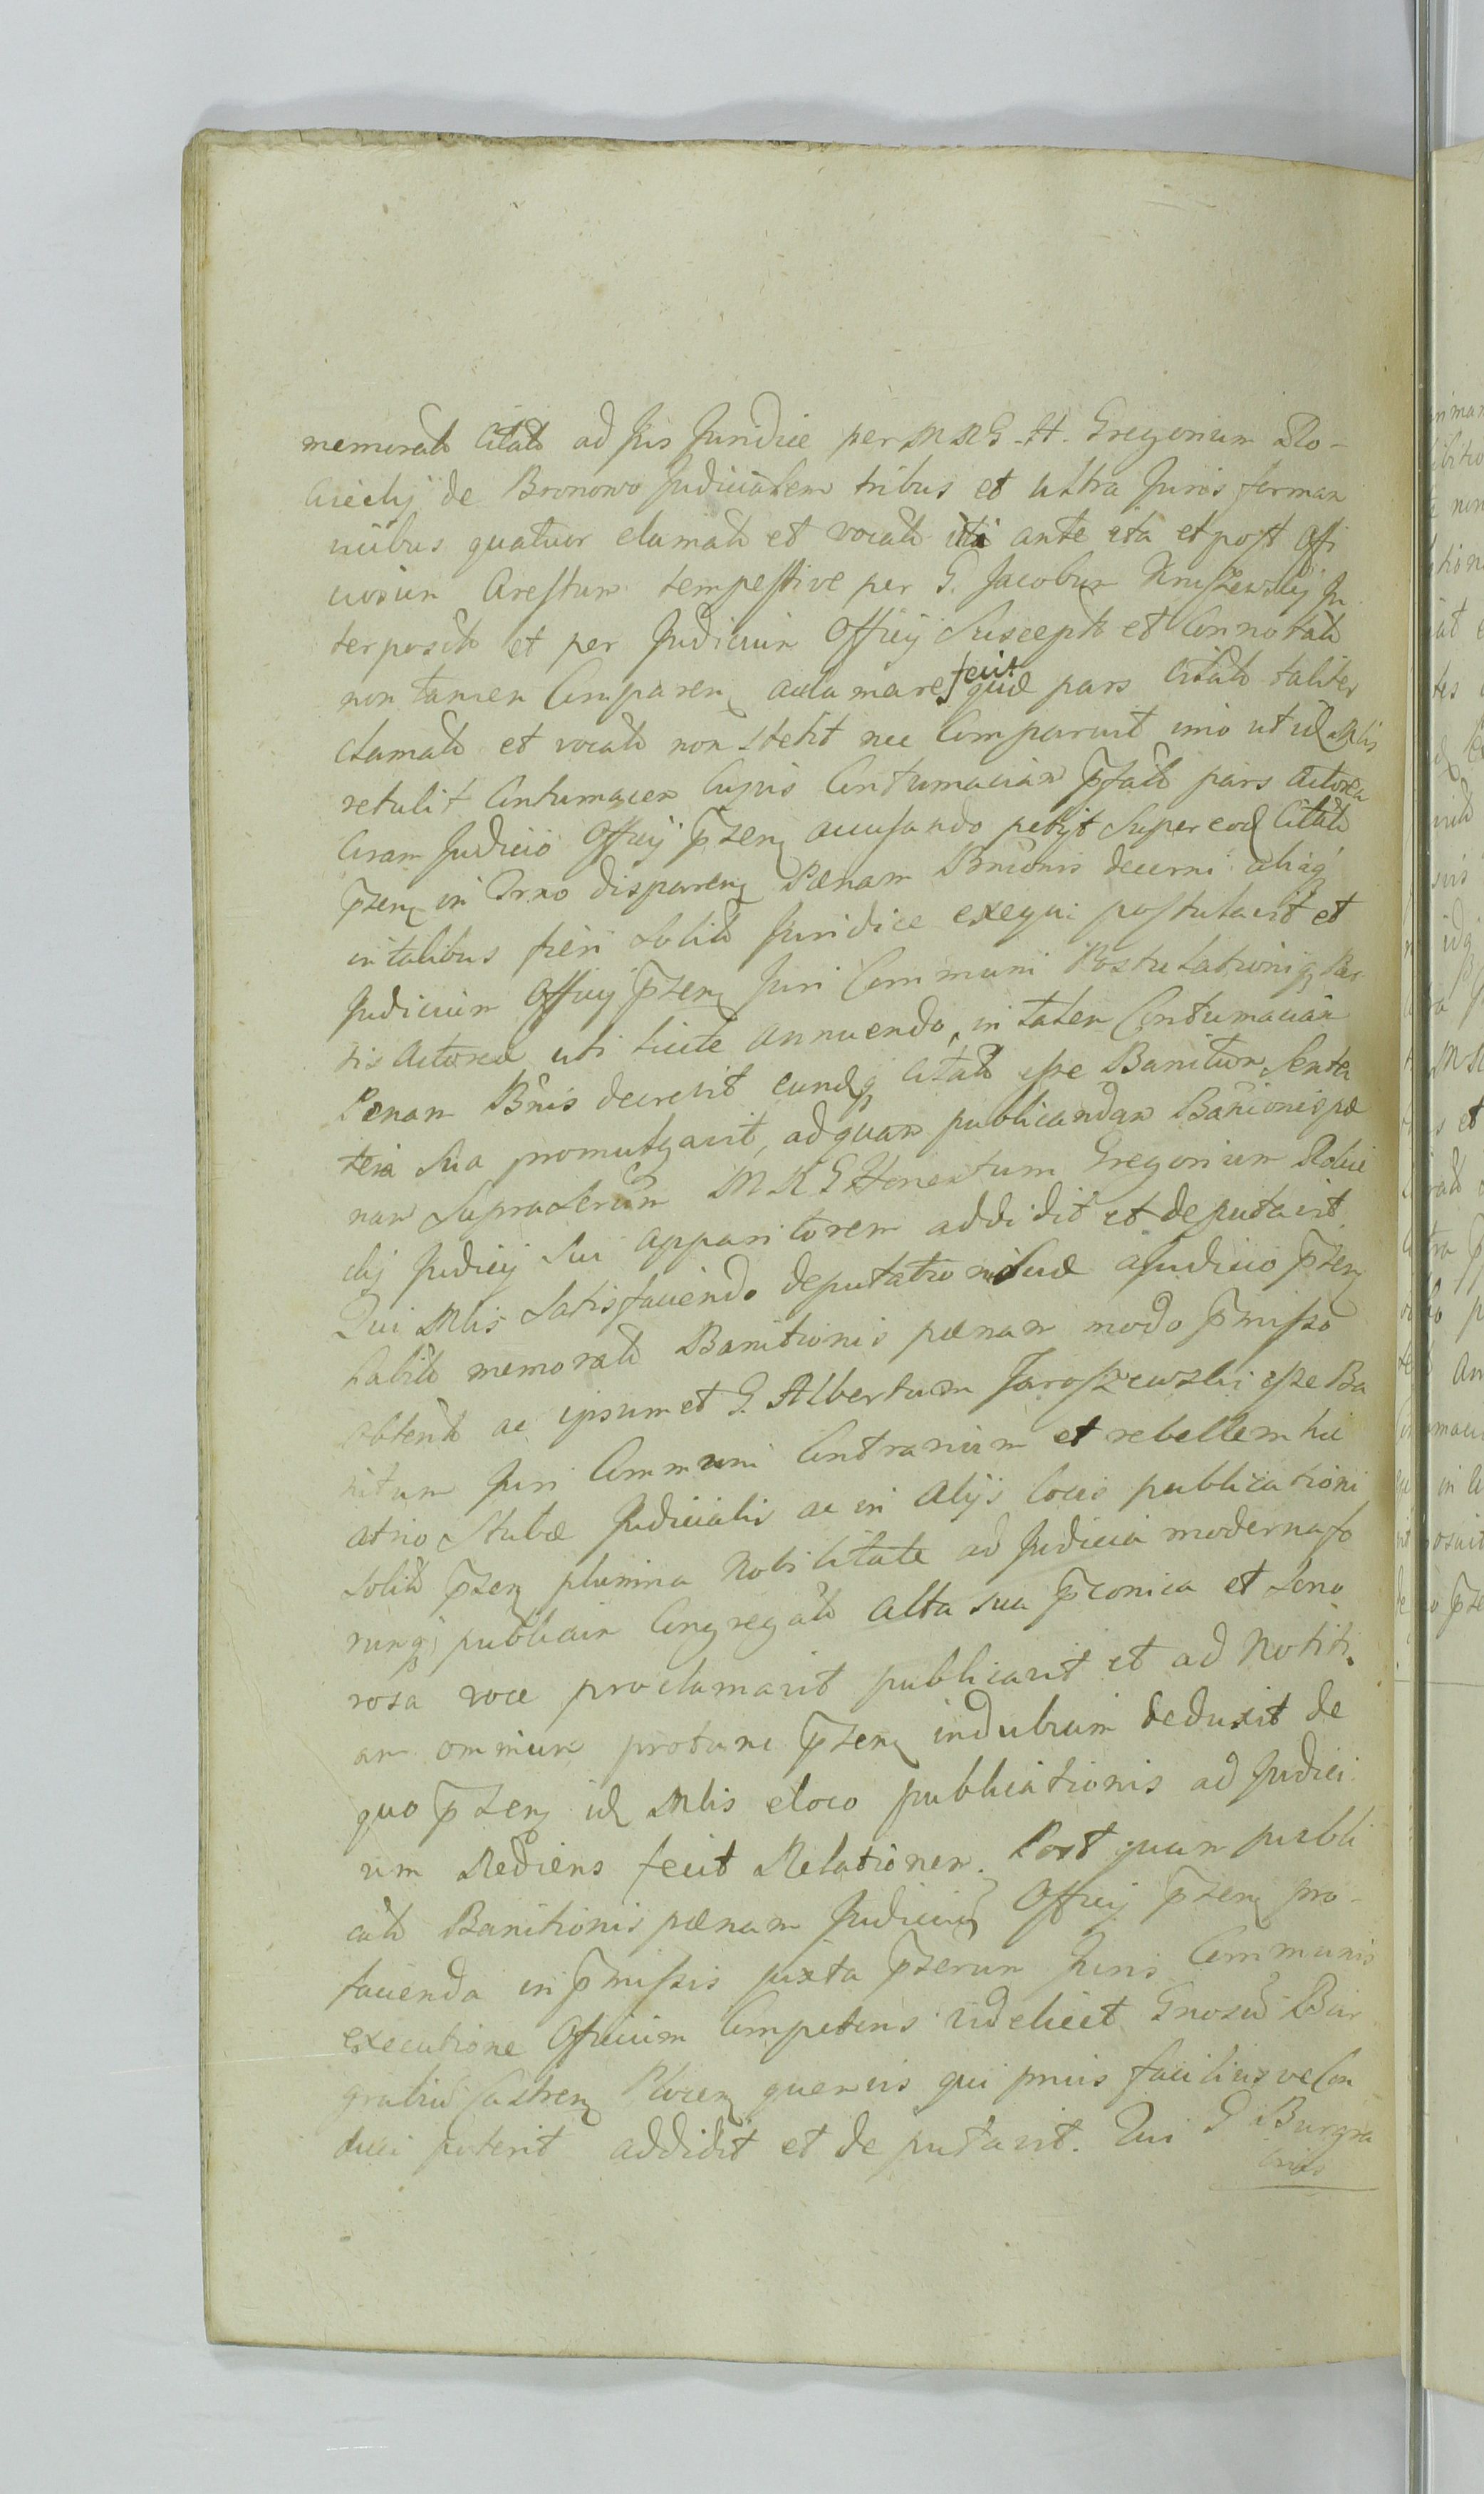 memorato Citato ad Jus Juridice per M R G. H. Gregorium Ro-
ciechy de Bronowo Judicialem tribus et ultra Juris forman
viibus quatuor clamato et vocato ita ante ita et post Offi
ciosum Arestum tempestive per G. Jacobum Kruszewsky In
terposito et per Judicium Officij Suscepto et Connotato
non tamen Comparen acclamare fecit quæ pars Citato taliter
clamato et vocato non stetit nec Comparuit imo ut id Mlis
retulit Contumacem Cujus Contumaciam p̄fato pars Actorea
Coram Judicio Officij p̄sen accusando petijt Super eod Citato
p̄sen in Trno disparen Pænam Bnionis decerni aliaq
in talibus fieri solita Juridice exequi postulavit et
Judicium Officij p̄sen Juri Communi Postulationiq Par
tis Actoreæ uti licite annuendo, in talem Contumaciam
Pænam Bnis decrevit eundq Citato esse Banitum Senten
teia Sua promulgavit, ad quam publicandam Banionis pæ
nam Suprascriam M R G Honestum Gregorium Rocie
chy Judicij Sui apparitorem addidit et deputavit.
Qui Mlis Satisfaciendo deputationi Suæ a Judicio p̄sen
habito memorato Banitionis pænam modo p̄misso
obtento ac ipsum et G. Albertum Jaroszewski esse Ba
nitum Juri Communi Contrarium et rebellem hic
atrio Stubæ Judicialis ac in alijs locis publicationi
solito p̄sen plurima Nobilitate ad Judicia moderna fo
rumq publicum Congregato alta sua p̄conica et Sono
rosa voce proclamavit publicavit et ad Notiti
am omnium protunc p̄sen indubium deduxit de
quo p̄sen id Mlis e loco publicationis ad Judici
um Rediens fecit Relationem. Post quam publi
cato Banitionis pænam Judicium Officij p̄sen pro-
facienda in p̄missis juxta p̄scrum Juris Communis
executione Officium Competens videlicet Gnosū Bur
grabiū Castren Plocen quemvis qui prius facilius ve Con
duci poterit addidit et deputavit. Qui G Burgra
bius